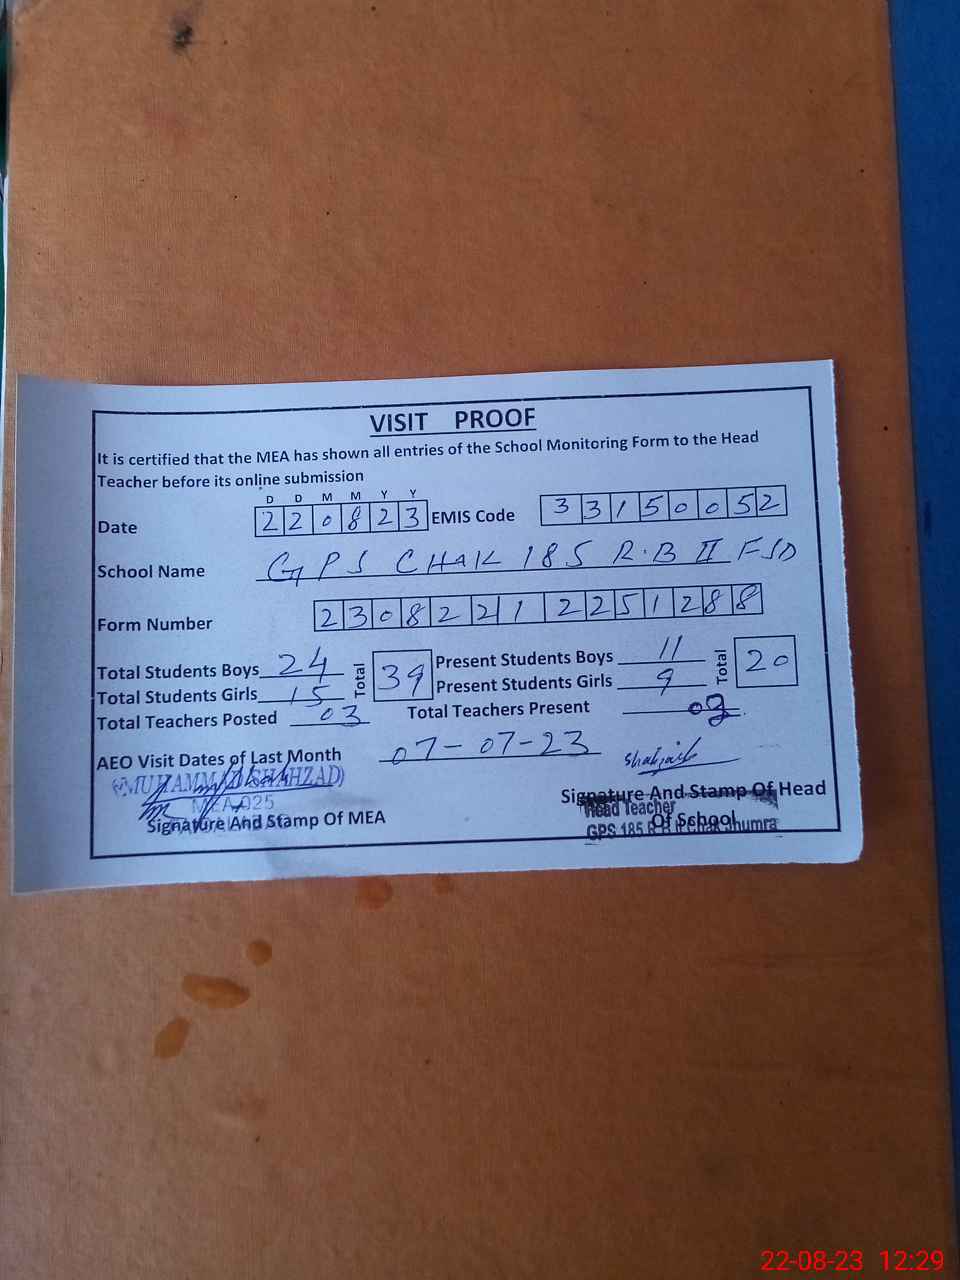 VISIT PROOF
It is certified that the MEA has shown all entries of the School Monitoring Form to the Head
Teacher before its online submission
D D M M Y Y
Date 2 2 0 8 2 3 EMIS Code 3 3 1 5 0 0 5 2
School Name GPS CHAK 185 R.B II FSD
Form Number 2 3 0 8 2 2 1 2 2 5 1 2 8 8
Total Students Boys 24 Total 39 Present Students Boys 11 Total 20
Total Students Girls 15 Present Students Girls 9
Total Teachers Posted 03 Total Teachers Present
AEO Visit Dates of Last Month 07-07-23
(MUHAMMAD SHAHZAD)
MEA 025
Signature And Stamp Of MEA
Signature And Stamp Of Head
Of School
Head Teacher
GPS 185 R.B II Chak Jhumra
22-08-23 12:29